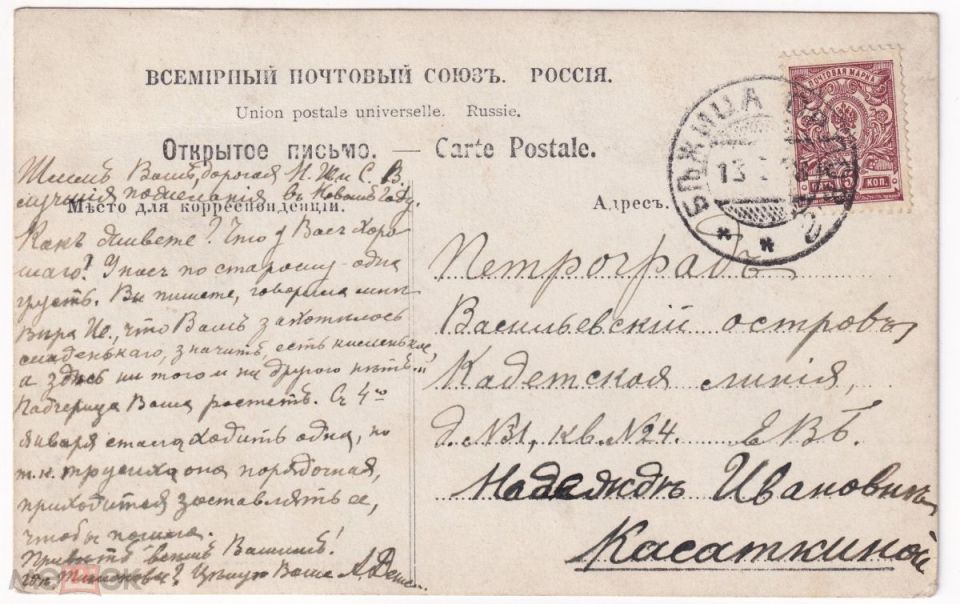 ВСЕМІРНЫЙ ПОЧТОВЫЙ СОЮЗЪ. РОССІЯ.
Union postale universelle. Russie.
Открытое письмо. — Carte Postale.
ПОЧТОВАЯ МАРКА
КОП.
БѢЖИЦА
13
Шлемъ Вамъ, дорогая Н. И. и С. В.
лучшія пожеланія въ Новомъ Году.
Мѣсто для корреспонденціи.
Адресъ.
Какъ живете? Что у Васъ хоро
шаго? У насъ по старому - одна
грусть. Вы пишете, говорила мнѣ
Вѣра, что Вамъ захотѣлось
сладенькаго, значитъ, есть кисленькое,
а здѣсь ни того и ни другого нѣтъ...
Падчерица Ваша растетъ. Съ 4го
Января стала ходить одна, но
т.к. трусиха она порядочная,
приходится заставлять ее,
чтобы пошла.
Привѣтъ всемъ Вашимъ!
Цѣлую Васъ
Петроградъ
Васильевскій островъ,
Кадетская линія,
д. №31, кв. №24. ЕВБ.
Надеждѣ Ивановнѣ
Касаткиной